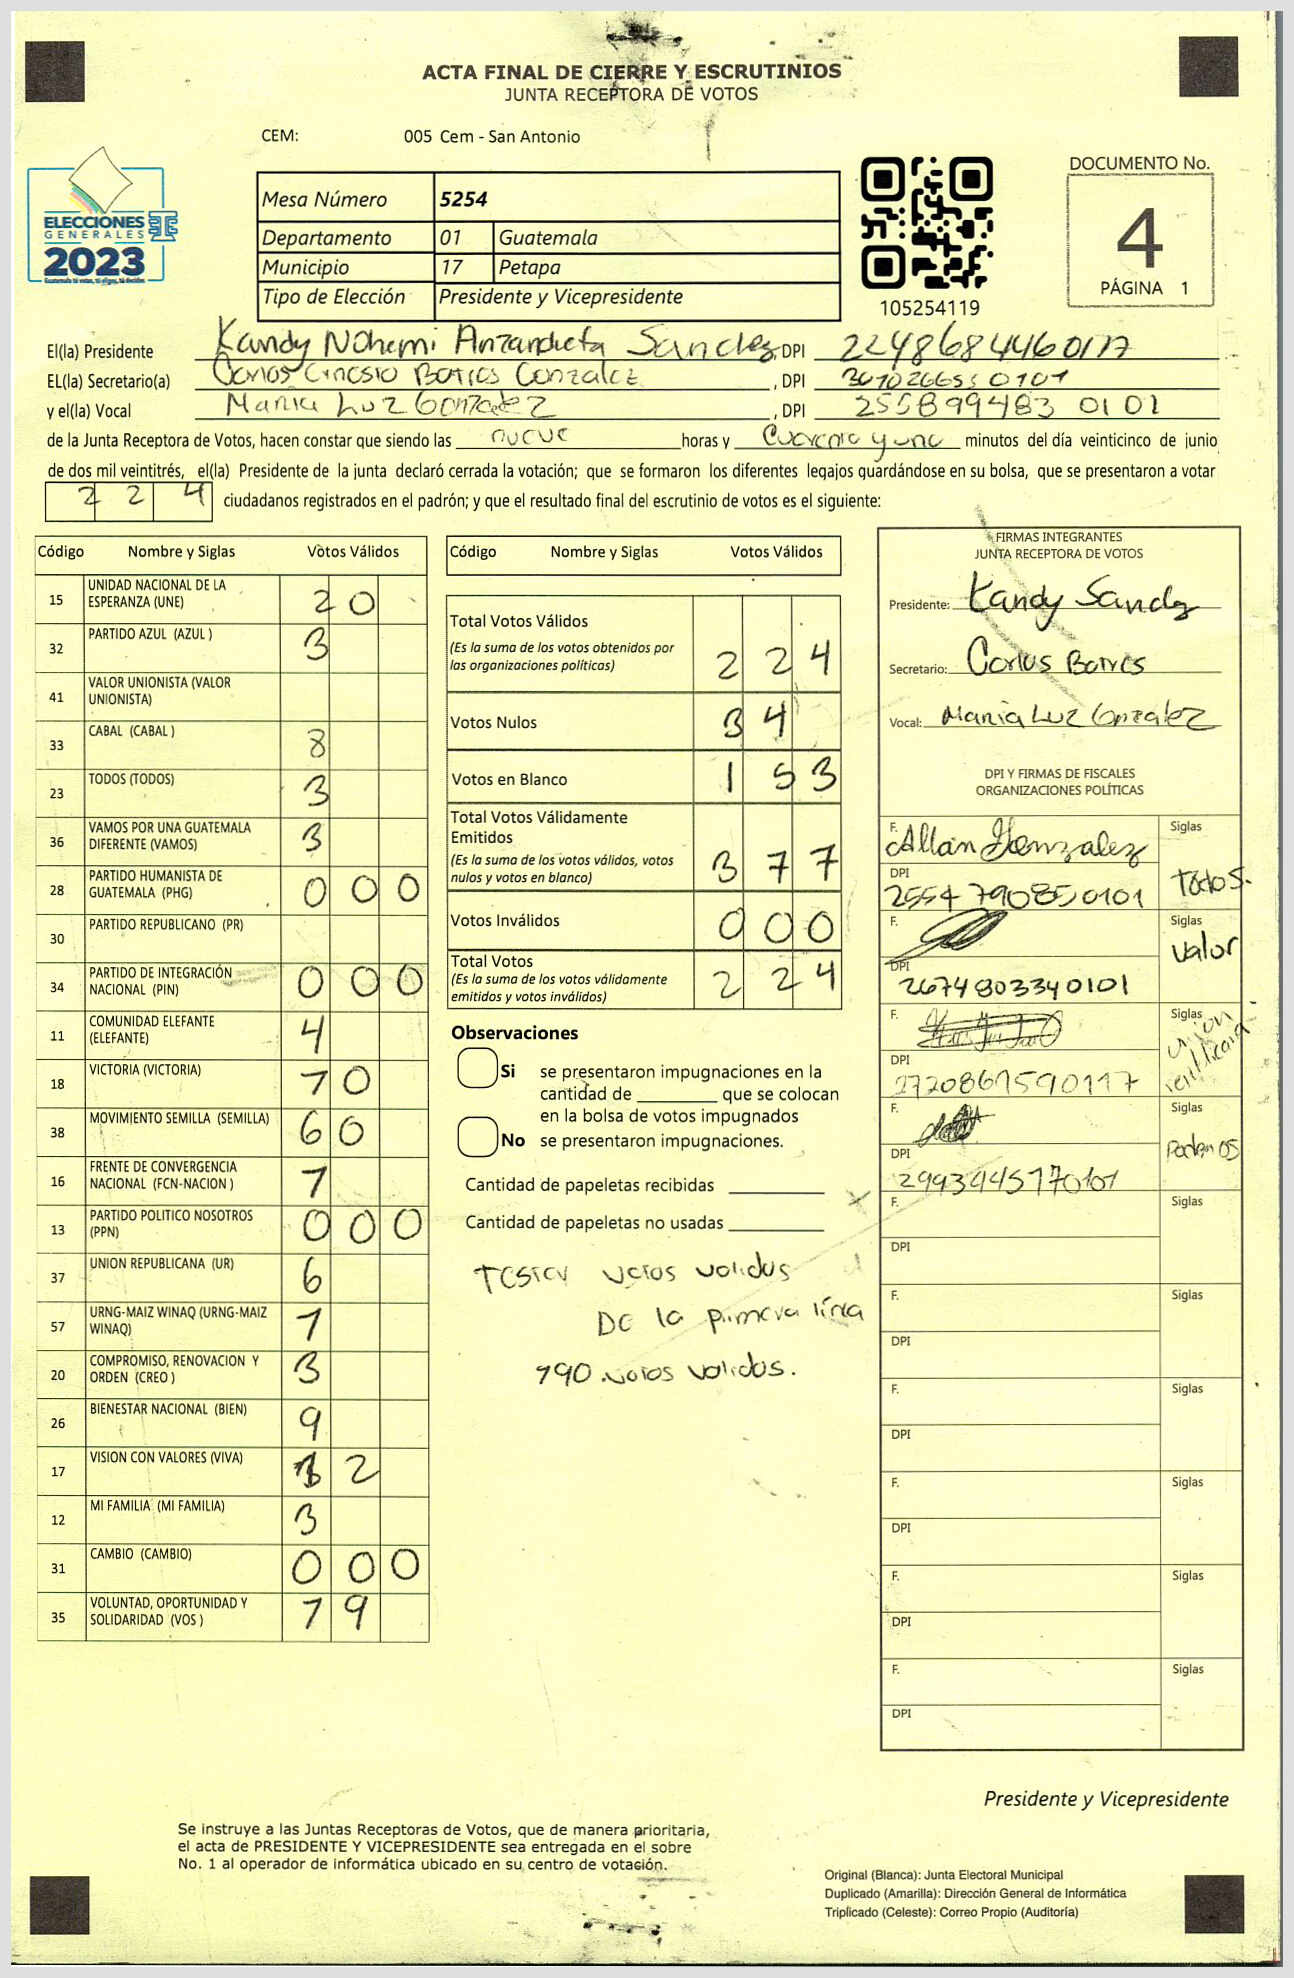 ACTA FINAL DE CIERRE Y ESCRUTINIOS
JUNTA RECEPTORA DE VOTOS
CEM: 005 Cem - San Antonio
ELECCIONES
GENERALES
2023
Mesa Número 5254
Departamento 01 Guatemala
Municipio 17 Petapa
Tipo de Elección Presidente y Vicepresidente
105254119
DOCUMENTO No.
4
PÁGINA 1
El(la) Presidente Kandy Nohemi Anzandueta Sanchez, DPI 2248684460117
EL(la) Secretario(a) Carlos Ernesto Batres Gonzalez, DPI 3010266530101
y el(la) Vocal Maria Luz Gonzalez, DPI 255899483 0101
de la Junta Receptora de Votos, hacen constar que siendo las nueve horas y cuarenta y uno minutos del día veinticinco de junio
de dos mil veintitrés, el(la) Presidente de la junta declaró cerrada la votación; que se formaron los diferentes legajos guardándose en su bolsa, que se presentaron a votar
2 2 4 ciudadanos registrados en el padrón; y que el resultado final del escrutinio de votos es el siguiente:
Código Nombre y Siglas Votos Válidos
15 UNIDAD NACIONAL DE LA ESPERANZA (UNE) 2 0
32 PARTIDO AZUL (AZUL ) 3
41 VALOR UNIONISTA (VALOR UNIONISTA)
33 CABAL (CABAL ) 8
23 TODOS (TODOS) 3
36 VAMOS POR UNA GUATEMALA DIFERENTE (VAMOS) 3
28 PARTIDO HUMANISTA DE GUATEMALA (PHG) 0 0 0
30 PARTIDO REPUBLICANO (PR)
34 PARTIDO DE INTEGRACIÓN NACIONAL (PIN) 0 0 0
11 COMUNIDAD ELEFANTE (ELEFANTE) 4
18 VICTORIA (VICTORIA) 1 0
38 MOVIMIENTO SEMILLA (SEMILLA) 6 0
16 FRENTE DE CONVERGENCIA NACIONAL (FCN-NACION ) 1
13 PARTIDO POLITICO NOSOTROS (PPN) 0 0 0
37 UNION REPUBLICANA (UR) 6
57 URNG-MAIZ WINAQ (URNG-MAIZ WINAQ) 1
20 COMPROMISO, RENOVACION Y ORDEN (CREO ) 3
26 BIENESTAR NACIONAL (BIEN) 9
17 VISION CON VALORES (VIVA) 1 2
12 MI FAMILIA (MI FAMILIA) 3
31 CAMBIO (CAMBIO) 0 0 0
35 VOLUNTAD, OPORTUNIDAD Y SOLIDARIDAD (VOS ) 1 9
Código Nombre y Siglas Votos Válidos
Total Votos Válidos 2 2 4
(Es la suma de los votos obtenidos por
las organizaciones políticas)
Votos Nulos 3 4
Votos en Blanco 1 5 3
Total Votos Válidamente
Emitidos 3 7 7
(Es la suma de los votos válidos, votos
nulos y votos en blanco)
Votos Inválidos 0 0 0
Total Votos 2 2 4
(Es la suma de los votos válidamente
emitidos y votos inválidos)
Observaciones
Si se presentaron impugnaciones en la
cantidad de ________ que se colocan
en la bolsa de votos impugnados
No se presentaron impugnaciones.
Cantidad de papeletas recibidas
Cantidad de papeletas no usadas
votos validos
De la primera linea
190 votos validos.
FIRMAS INTEGRANTES
JUNTA RECEPTORA DE VOTOS
Presidente: Kandy Sandz
Secretario: Carlos Batres
Vocal: Maria Luz Gonzalez
DPI Y FIRMAS DE FISCALES
ORGANIZACIONES POLÍTICAS
F. Allan Gonzalez Siglas
DPI Todos.
2554 790850101
F. Siglas
Valor
DPI
2674803340101
F. Siglas
union
DPI
2720861590117
F. Siglas
Podemos
DPI
2993445170101
F. Siglas
DPI
F. Siglas
DPI
F. Siglas
DPI
F. Siglas
DPI
F. Siglas
DPI
F. Siglas
DPI
Presidente y Vicepresidente
Se instruye a las Juntas Receptoras de Votos, que de manera prioritaria,
el acta de PRESIDENTE Y VICEPRESIDENTE sea entregada en el sobre
No. 1 al operador de informática ubicado en su centro de votación.
Original (Blanca): Junta Electoral Municipal
Duplicado (Amarilla): Dirección General de Informática
Triplicado (Celeste): Correo Propio (Auditoría)